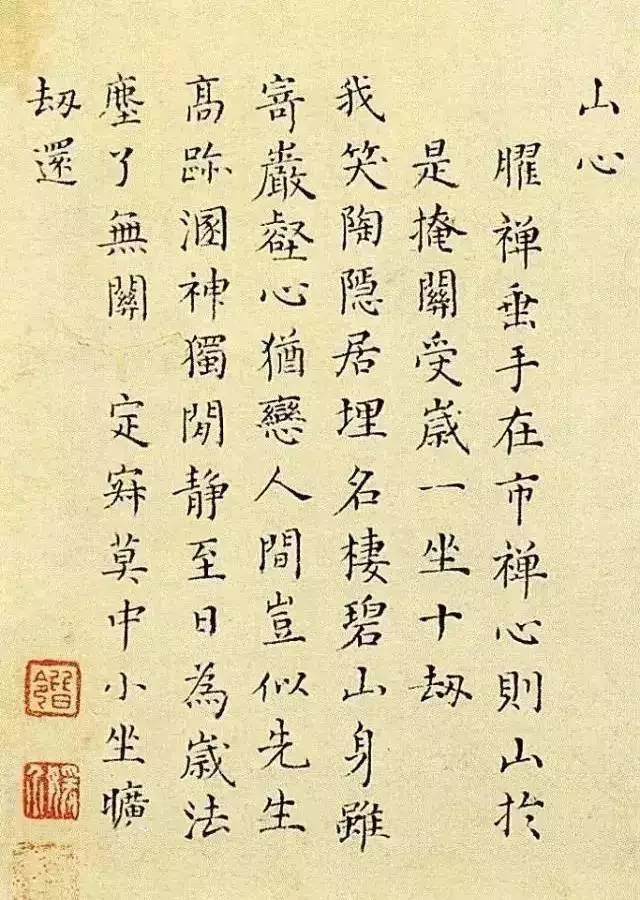 山心
臞禪垂手在市禪心則山於
是掩關受歲一坐十刼
我笑陶隱居埋名棲碧山身雖
寄巖壑心猶戀人間豈似先生
高跡溷神獨閒靜至日為歲法
塵了無關 定寂莫中小坐曠
刼還